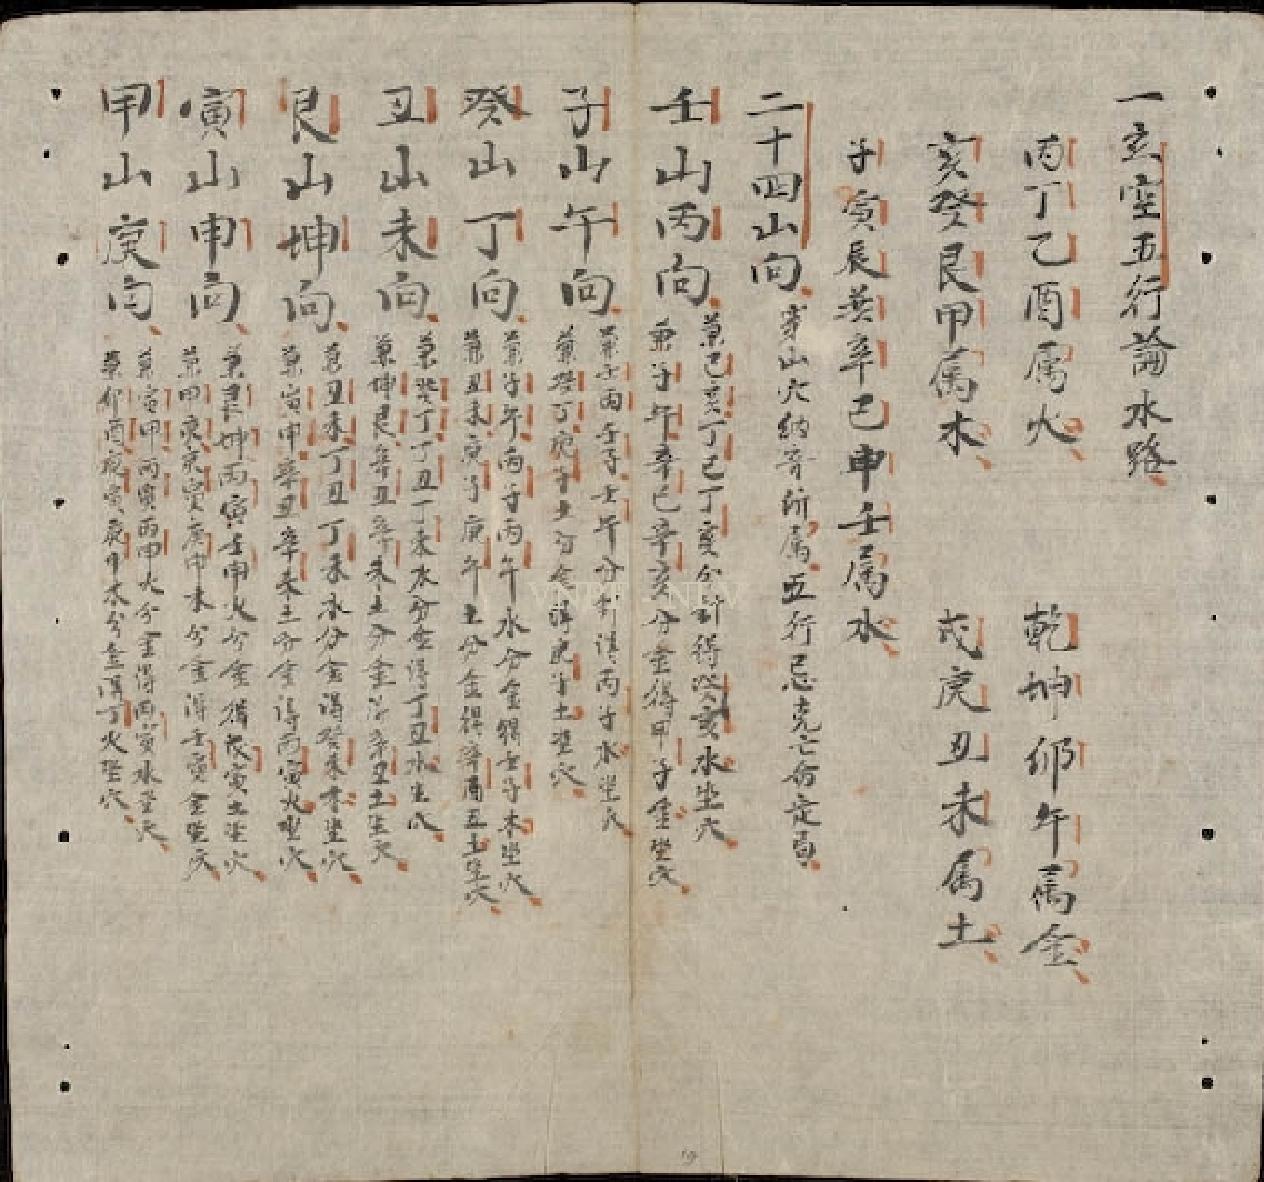 一玄空五行論水路
丙丁乙酉属火 乾坤卯午属金
亥癸艮甲属木 戌庚丑未属土
子寅辰巽辛巳申壬属水
二十四山向 穿山穴納音所属五行忌克亡命定局
壬山丙向
兼巳亥丁巳丁亥分針得癸亥水坐穴
兼子午辛巳辛亥分金得甲子金坐穴
子山午向
兼壬丙壬子壬午分針得丙子水坐穴
兼癸丁庚子土分金得庚子土坐穴
癸山丁向
兼子午丙子丙午水分金得壬子木坐穴
兼丑未庚子庚午土分金得辛酉五土坐穴
丑山未向
兼癸丁丁丑丁未水分金得丁丑水坐穴
兼坤艮辛丑辛未土分金得辛丑土坐穴
艮山坤向
兼丑未丁丑丁未水分金得癸未木坐穴
兼寅申辛丑辛未土分金得丙寅火坐穴
寅山申向
兼艮坤丙寅壬申火分金得戊寅土坐穴
兼甲庚庚寅庚申木分金得壬寅金坐穴
甲山庚向
兼寅甲丙寅丙申火分金得丙寅水坐穴
兼卯酉庚寅庚申木分金得丁火坐穴